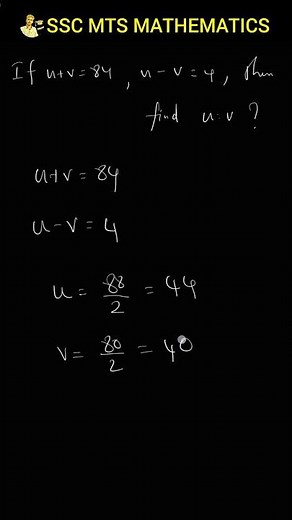 SSC MTS MATHEMATICS
If u+v=84, u-v=4, then
find u:v?
u+v=84
u-v=4
u = 88/2 = 44
v = 80/2 = 40